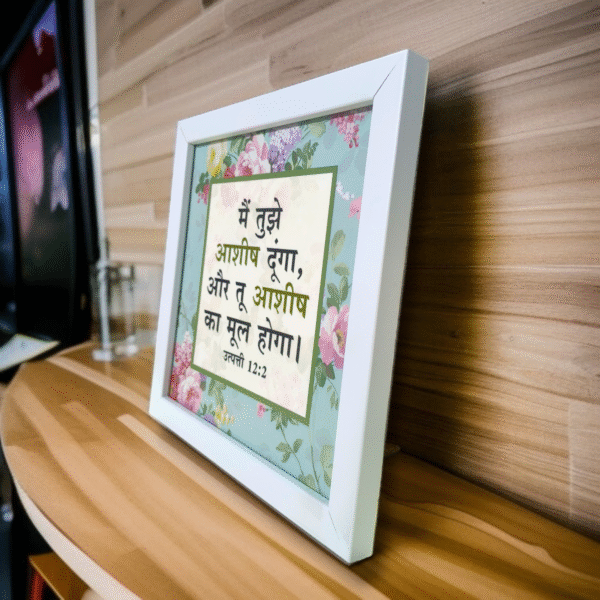 मैं तुझे
आशीष दूंगा,
और तू आशीष
का मूल होगा।
उत्पत्ती 12:2